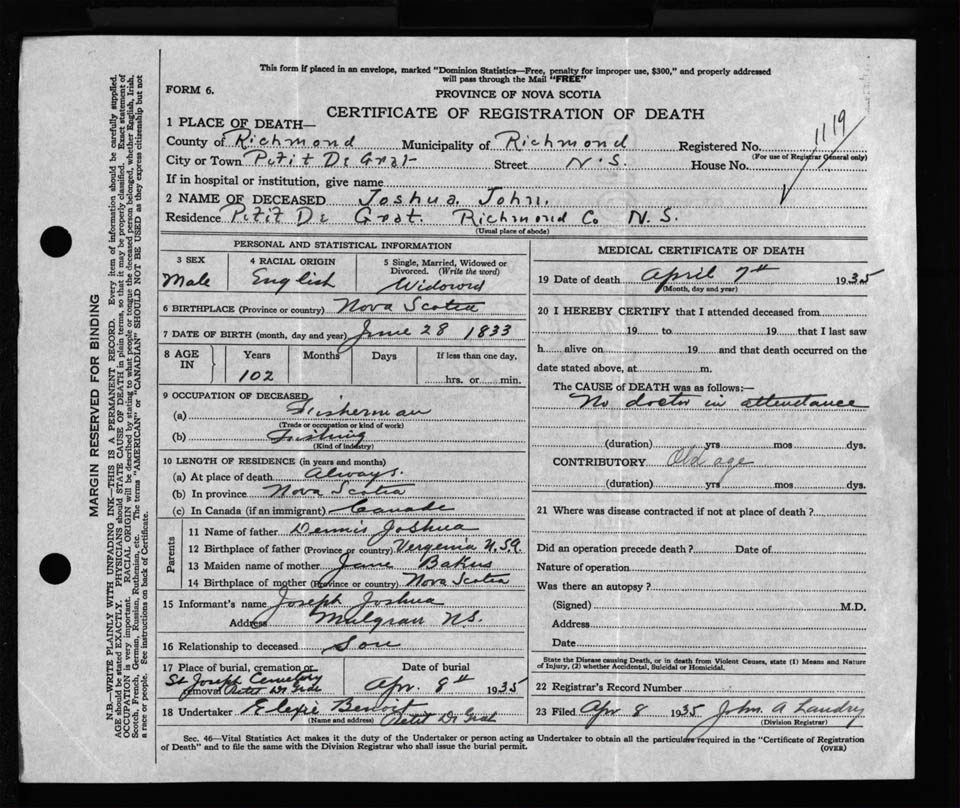 This form if placed in an envelope, marked "Dominion Statistics—Free, penalty for improper use, $300," and properly addressed
will pass through the Mail "FREE"
FORM 6.
PROVINCE OF NOVA SCOTIA
CERTIFICATE OF REGISTRATION OF DEATH
1119
1 PLACE OF DEATH—
County of Richmond Municipality of Richmond Registered No.
(For use of Registrar General only)
City or Town Petit De Grat Street N.S. House No.
If in hospital or institution, give name
2 NAME OF DECEASED Joshua John.
Residence Petit De Grat. Richmond Co N.S.
(Usual place of abode)
PERSONAL AND STATISTICAL INFORMATION
3 SEX 4 RACIAL ORIGIN 5 Single, Married, Widowed or Divorced. (Write the word)
Male English Widowed
6 BIRTHPLACE (Province or country) Nova Scotia
7 DATE OF BIRTH (month, day and year) June 28 1833
8 AGE IN Years Months Days If less than one day,
102 hrs. or min.
9 OCCUPATION OF DECEASED
(a) Fisherman
(Trade or occupation or kind of work)
(b) Fishing
(Kind of industry)
10 LENGTH OF RESIDENCE (in years and months)
(a) At place of death Always.
(b) In province Nova Scotia
(c) In Canada (if an immigrant) Canada
Parents
11 Name of father Dennis Joshua
12 Birthplace of father (Province or country) Vergenia U.Sa.
13 Maiden name of mother Jane Bakus
14 Birthplace of mother (Province or country) Nova Scotia
15 Informant's name Joseph Joshua
Address Mulgrave N.S.
16 Relationship to deceased Son
17 Place of burial, cremation or removal Date of burial
St Joseph Cemetery Petit De Grat Apr. 8th 1935
18 Undertaker Elexie Benoit Petit De Grat
(Name and address)
MEDICAL CERTIFICATE OF DEATH
19 Date of death April 7th 1935
(Month, day and year)
20 I HEREBY CERTIFY that I attended deceased from
19 to 19 that I last saw
h alive on 19 and that death occurred on the
date stated above, at m.
The CAUSE of DEATH was as follows:—
No doctor in attendance
(duration) yrs mos dys.
CONTRIBUTORY Old age
(duration) yrs mos dys.
21 Where was disease contracted if not at place of death?
Did an operation precede death? Date of
Nature of operation
Was there an autopsy?
(Signed) M.D.
Address
Date
State the Disease causing Death, or in death from Violent Causes, state (1) Means and Nature
of Injury, (2) whether Accidental, Suicidal or Homicidal.
22 Registrar's Record Number
23 Filed Apr 8 1935 John. A Landry
(Division Registrar)
Sec. 46—Vital Statistics Act makes it the duty of the Undertaker or person acting as Undertaker to obtain all the particulars required in the "Certificate of Registration
of Death" and to file the same with the Division Registrar who shall issue the burial permit.
(OVER)
MARGIN RESERVED FOR BINDING
N.B.—WRITE PLAINLY WITH UNFADING INK—THIS IS A PERMANENT RECORD. Every item of information should be carefully supplied.
AGE should be stated EXACTLY. PHYSICIANS should STATE CAUSE OF DEATH in plain terms, so that it may be properly classified. Exact statement of
OCCUPATION is very important. RACIAL ORIGIN will be described by stating to what people or tongue the deceased person belonged, whether English, Irish,
Scotch, French, German, Russian, Ruthenian, etc. The terms "AMERICAN" or "CANADIAN" SHOULD NOT BE USED as they express citizenship but not
a race or people. See instructions on back of Certificate.